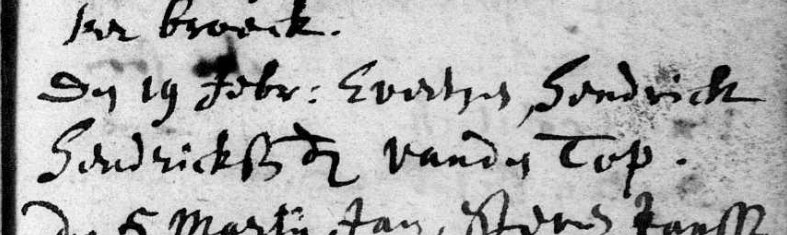 ker broeck.
Den 19 Febr: Evertyen, Hendrick
Hendrickss dr vanden Top.
Den 5 Martij Jan, Janss